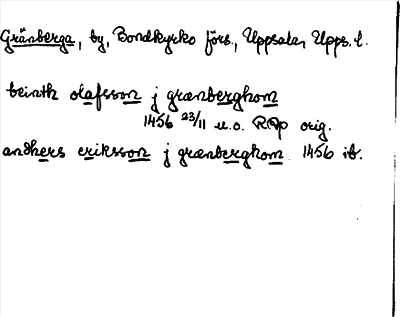 Gränberga, by, Bondkyrko förs., Uppsala, Upps. l.
beinth olafsson j grænberghom
1456 23/11 u.o. RAp orig.
andhers eriksson j grænberghom 1456 ib.